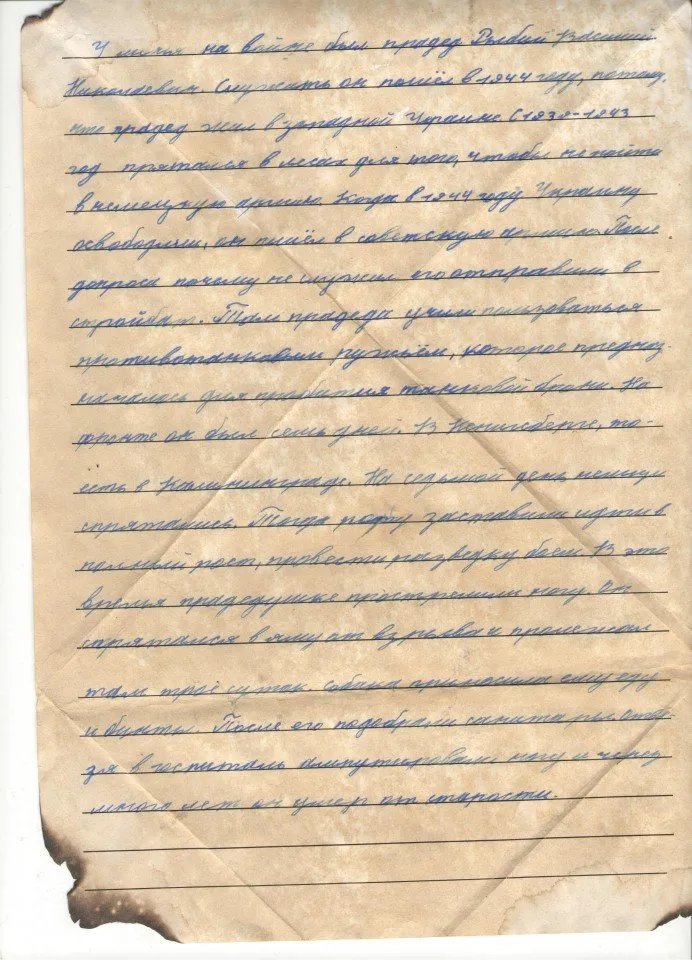 У меня на войне был прадед Рыбий Василий
Николаевич. Служить он пошёл в 1944 году, потому,
что прадед жил в западной Украине С 1939-1943
год прятался в лесах для того, чтобы не пойти
в немецкую армию. Когда в 1944 году Украину
освободили, он пошёл в советскую армию. После
допроса почему не служил его отправили в
стройбат. Там прадеда учили пользоваться
противотанковым ружьём, которое предназ
началось для пробития танковой брони. На
фронте он был семь дней. В Кенигсберге, то-
есть в Калининграде. На седьмой день немцы
спрятались. Тогда роту заставили идти в
полный рост, провести разведку боем. В это
время прадедушке прострелили ногу. Он
спрятался в яму от взрыва и пролежал
там трое суток. Собака приносила ему еду
и бинты. После его подобрали санитары. Отве
зя в госпиталь ампутировали ногу и через
много лет он умер от старости.